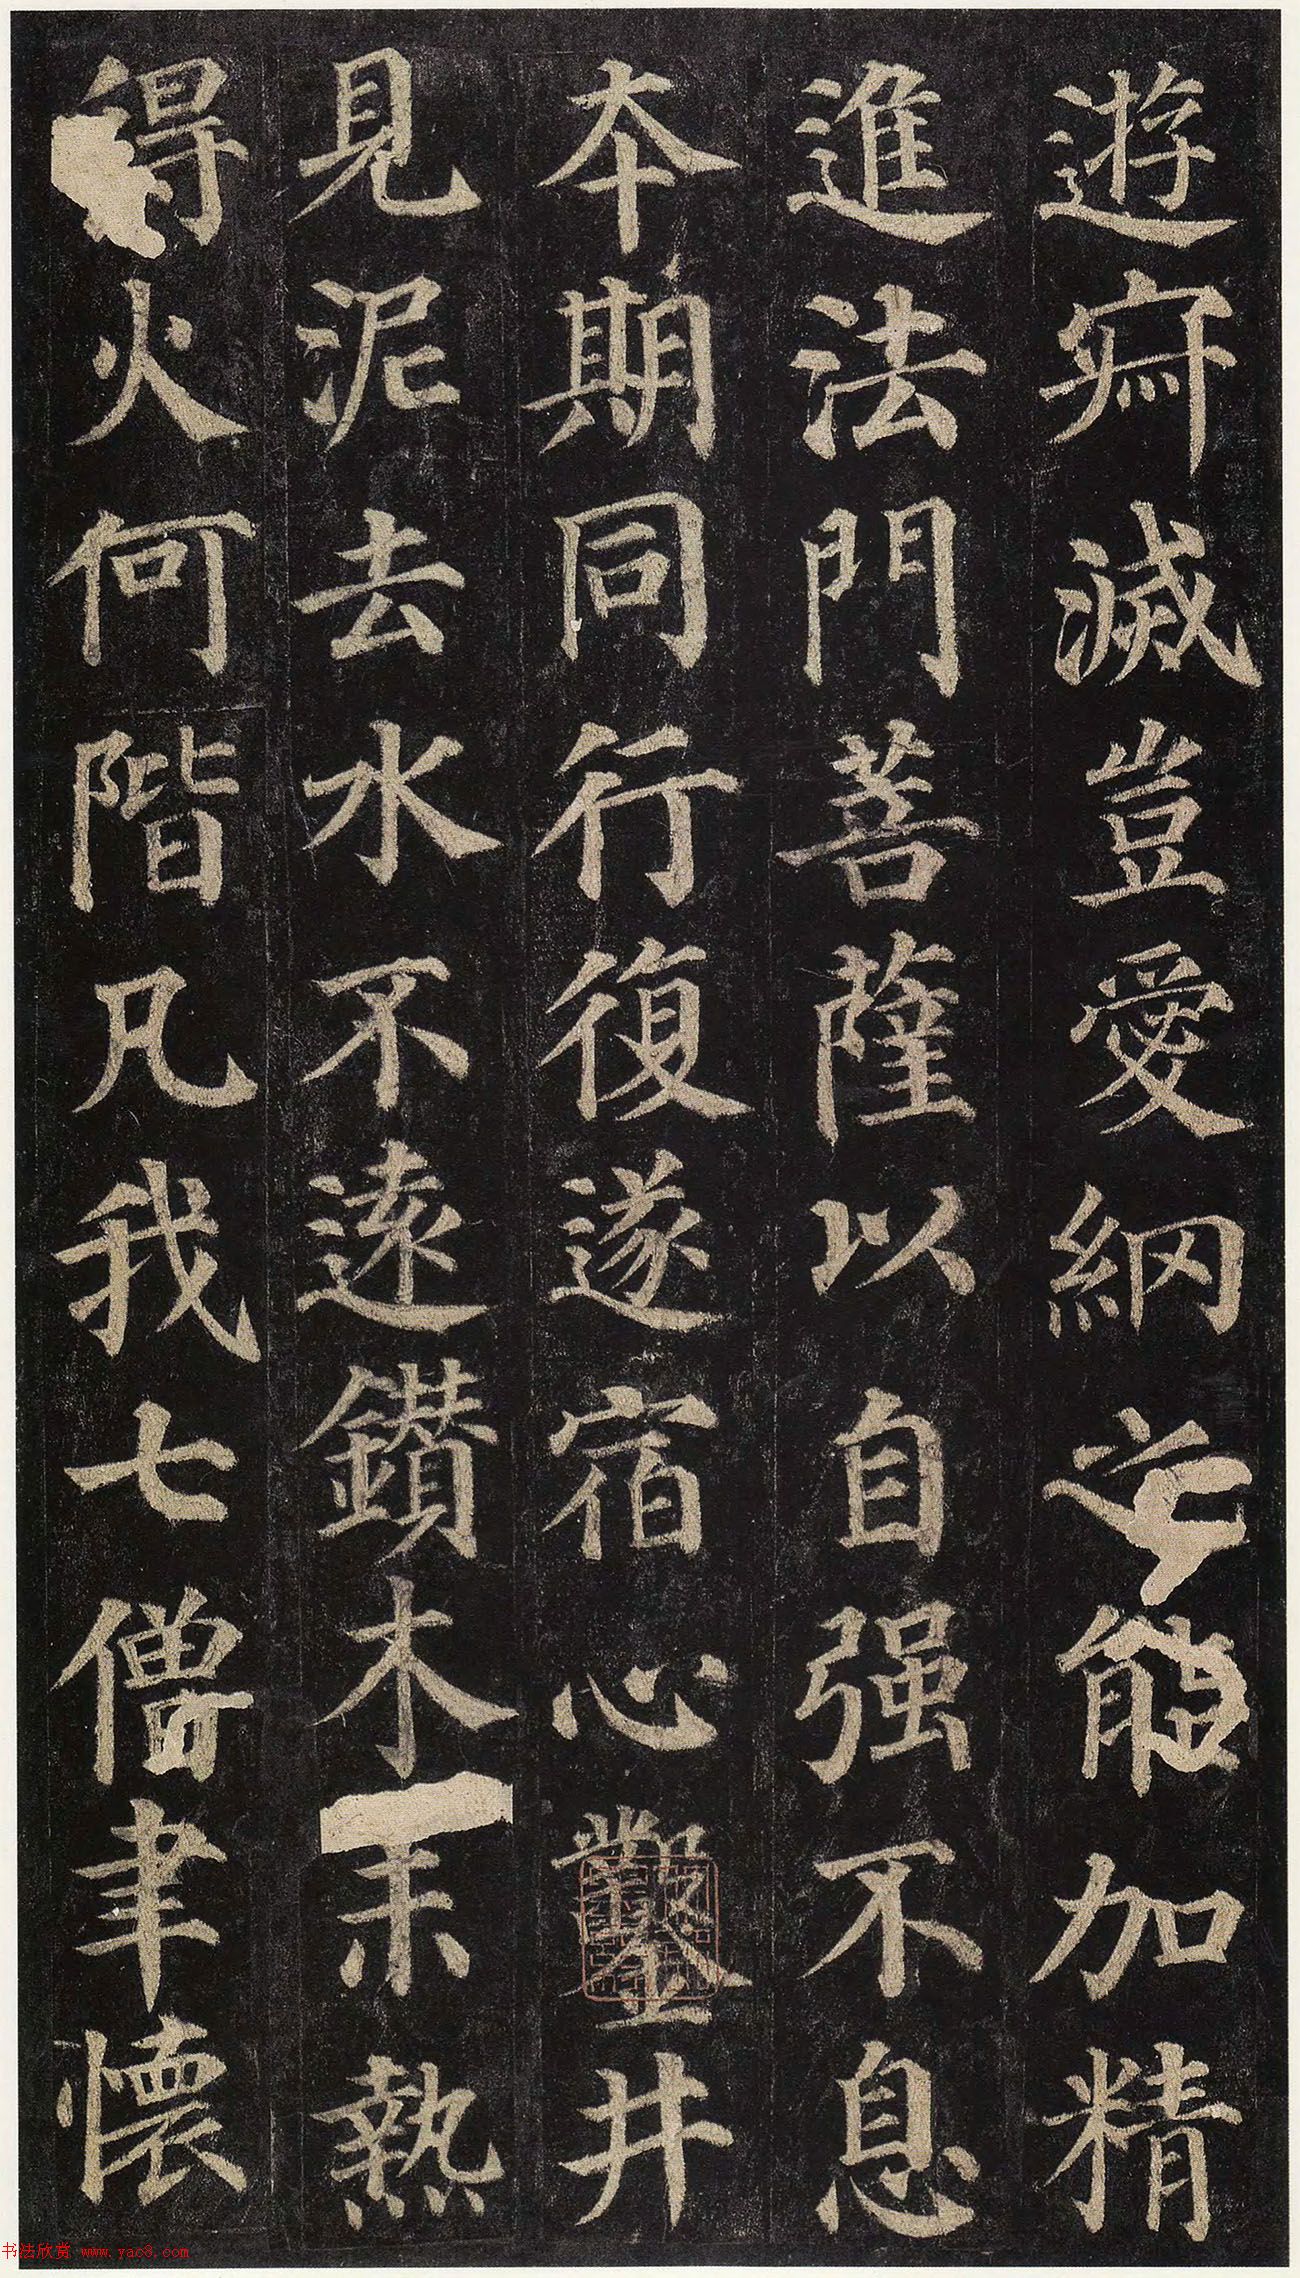 遊㝛滅豈愛網之能加精
進法門菩薩以自强不息
夲期同行復遂宿心鑿井
見泥去水不遠鑽木未熱
得火何階凡我七僧聿懷
书法欣赏 www.yac8.com